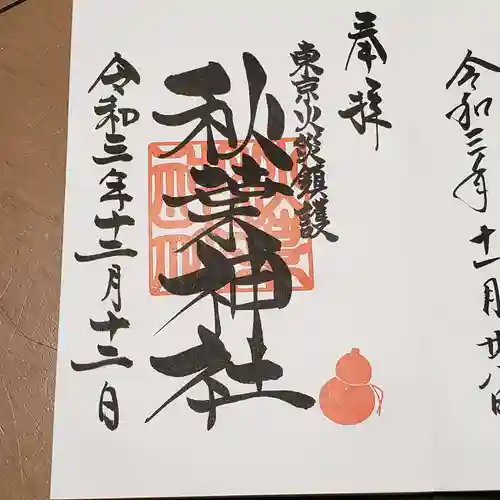 令和三年十一月廿八日
奉拝
東京火災鎮護
秋葉神社
令和三年十二月十二日